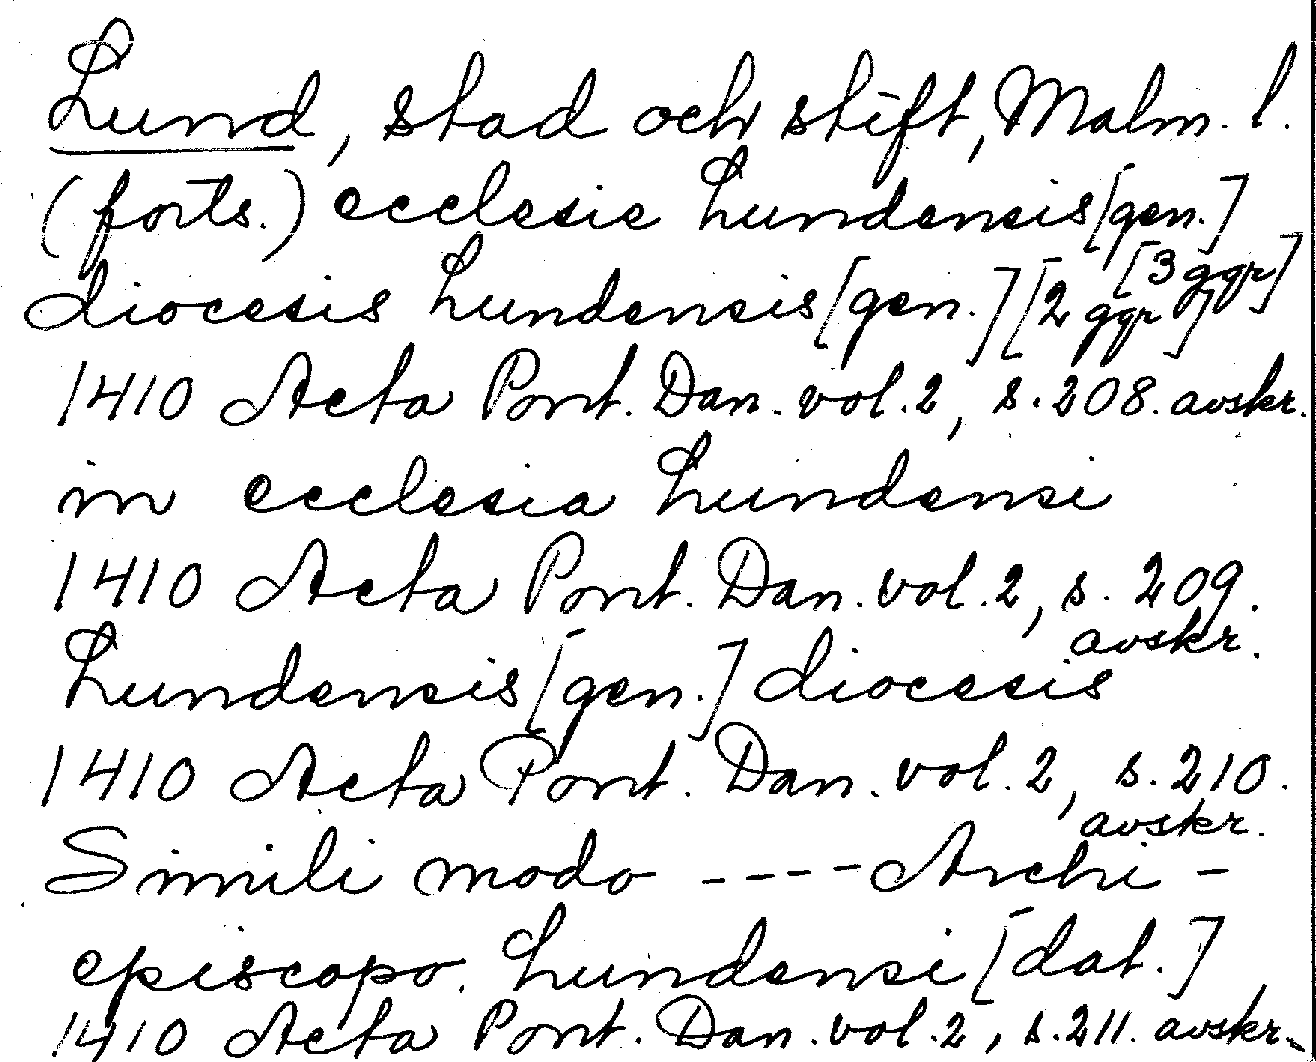 Lund, stad och stift, Malm. l.
(forts.) ecclesie Lundensis [gen.]
[3 ggr]
diocesis Lundensis [gen.] [2 ggr]
1410 Acta Pont. Dan. vol. 2, s. 208. avskr.
in ecclesia Lundensi
1410 Acta Pont. Dan. vol. 2, s. 209.
avskr.
Lundensis [gen.] diocesis
1410 Acta Pont. Dan. vol. 2, s. 210.
avskr.
Simili modo ---- Archi-
episcopo. Lundensi [dat.]
1410 Acta Pont. Dan. vol. 2, s. 211. avskr.